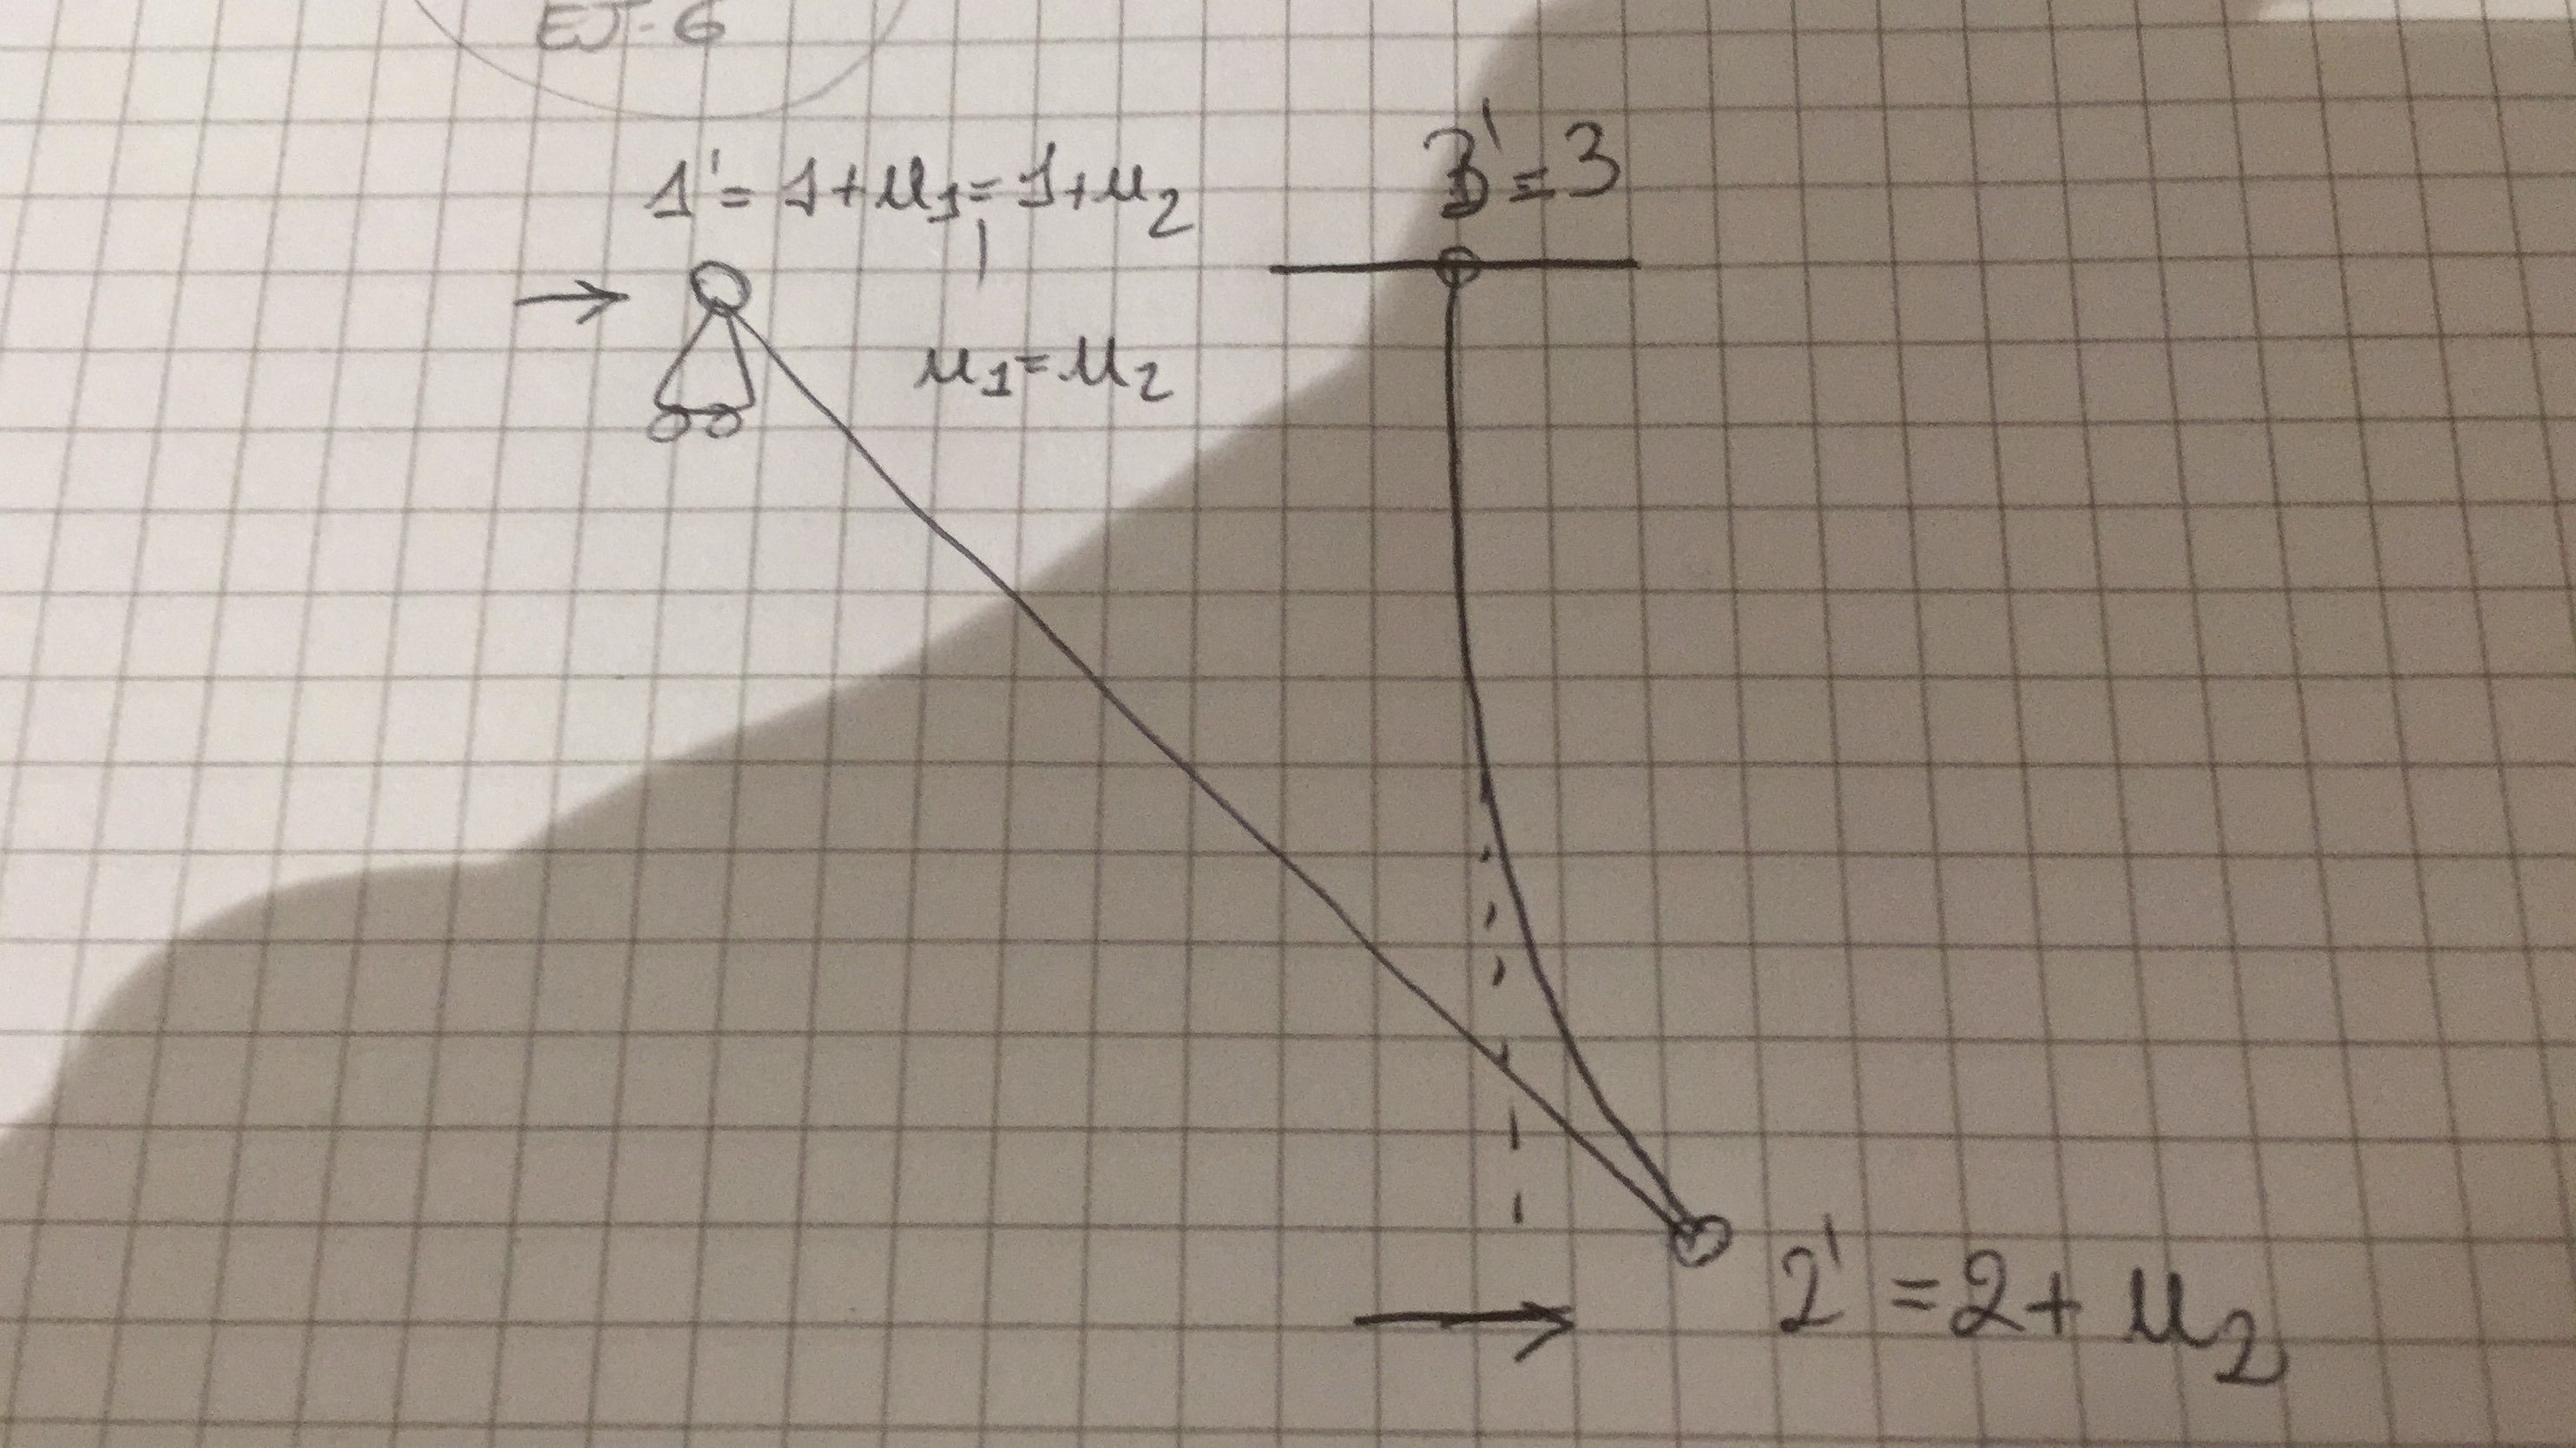 EJ-6
1' = 1 + u₁ = 1 + u₂
3' = 3
u₁ = u₂
2' = 2 + u₂